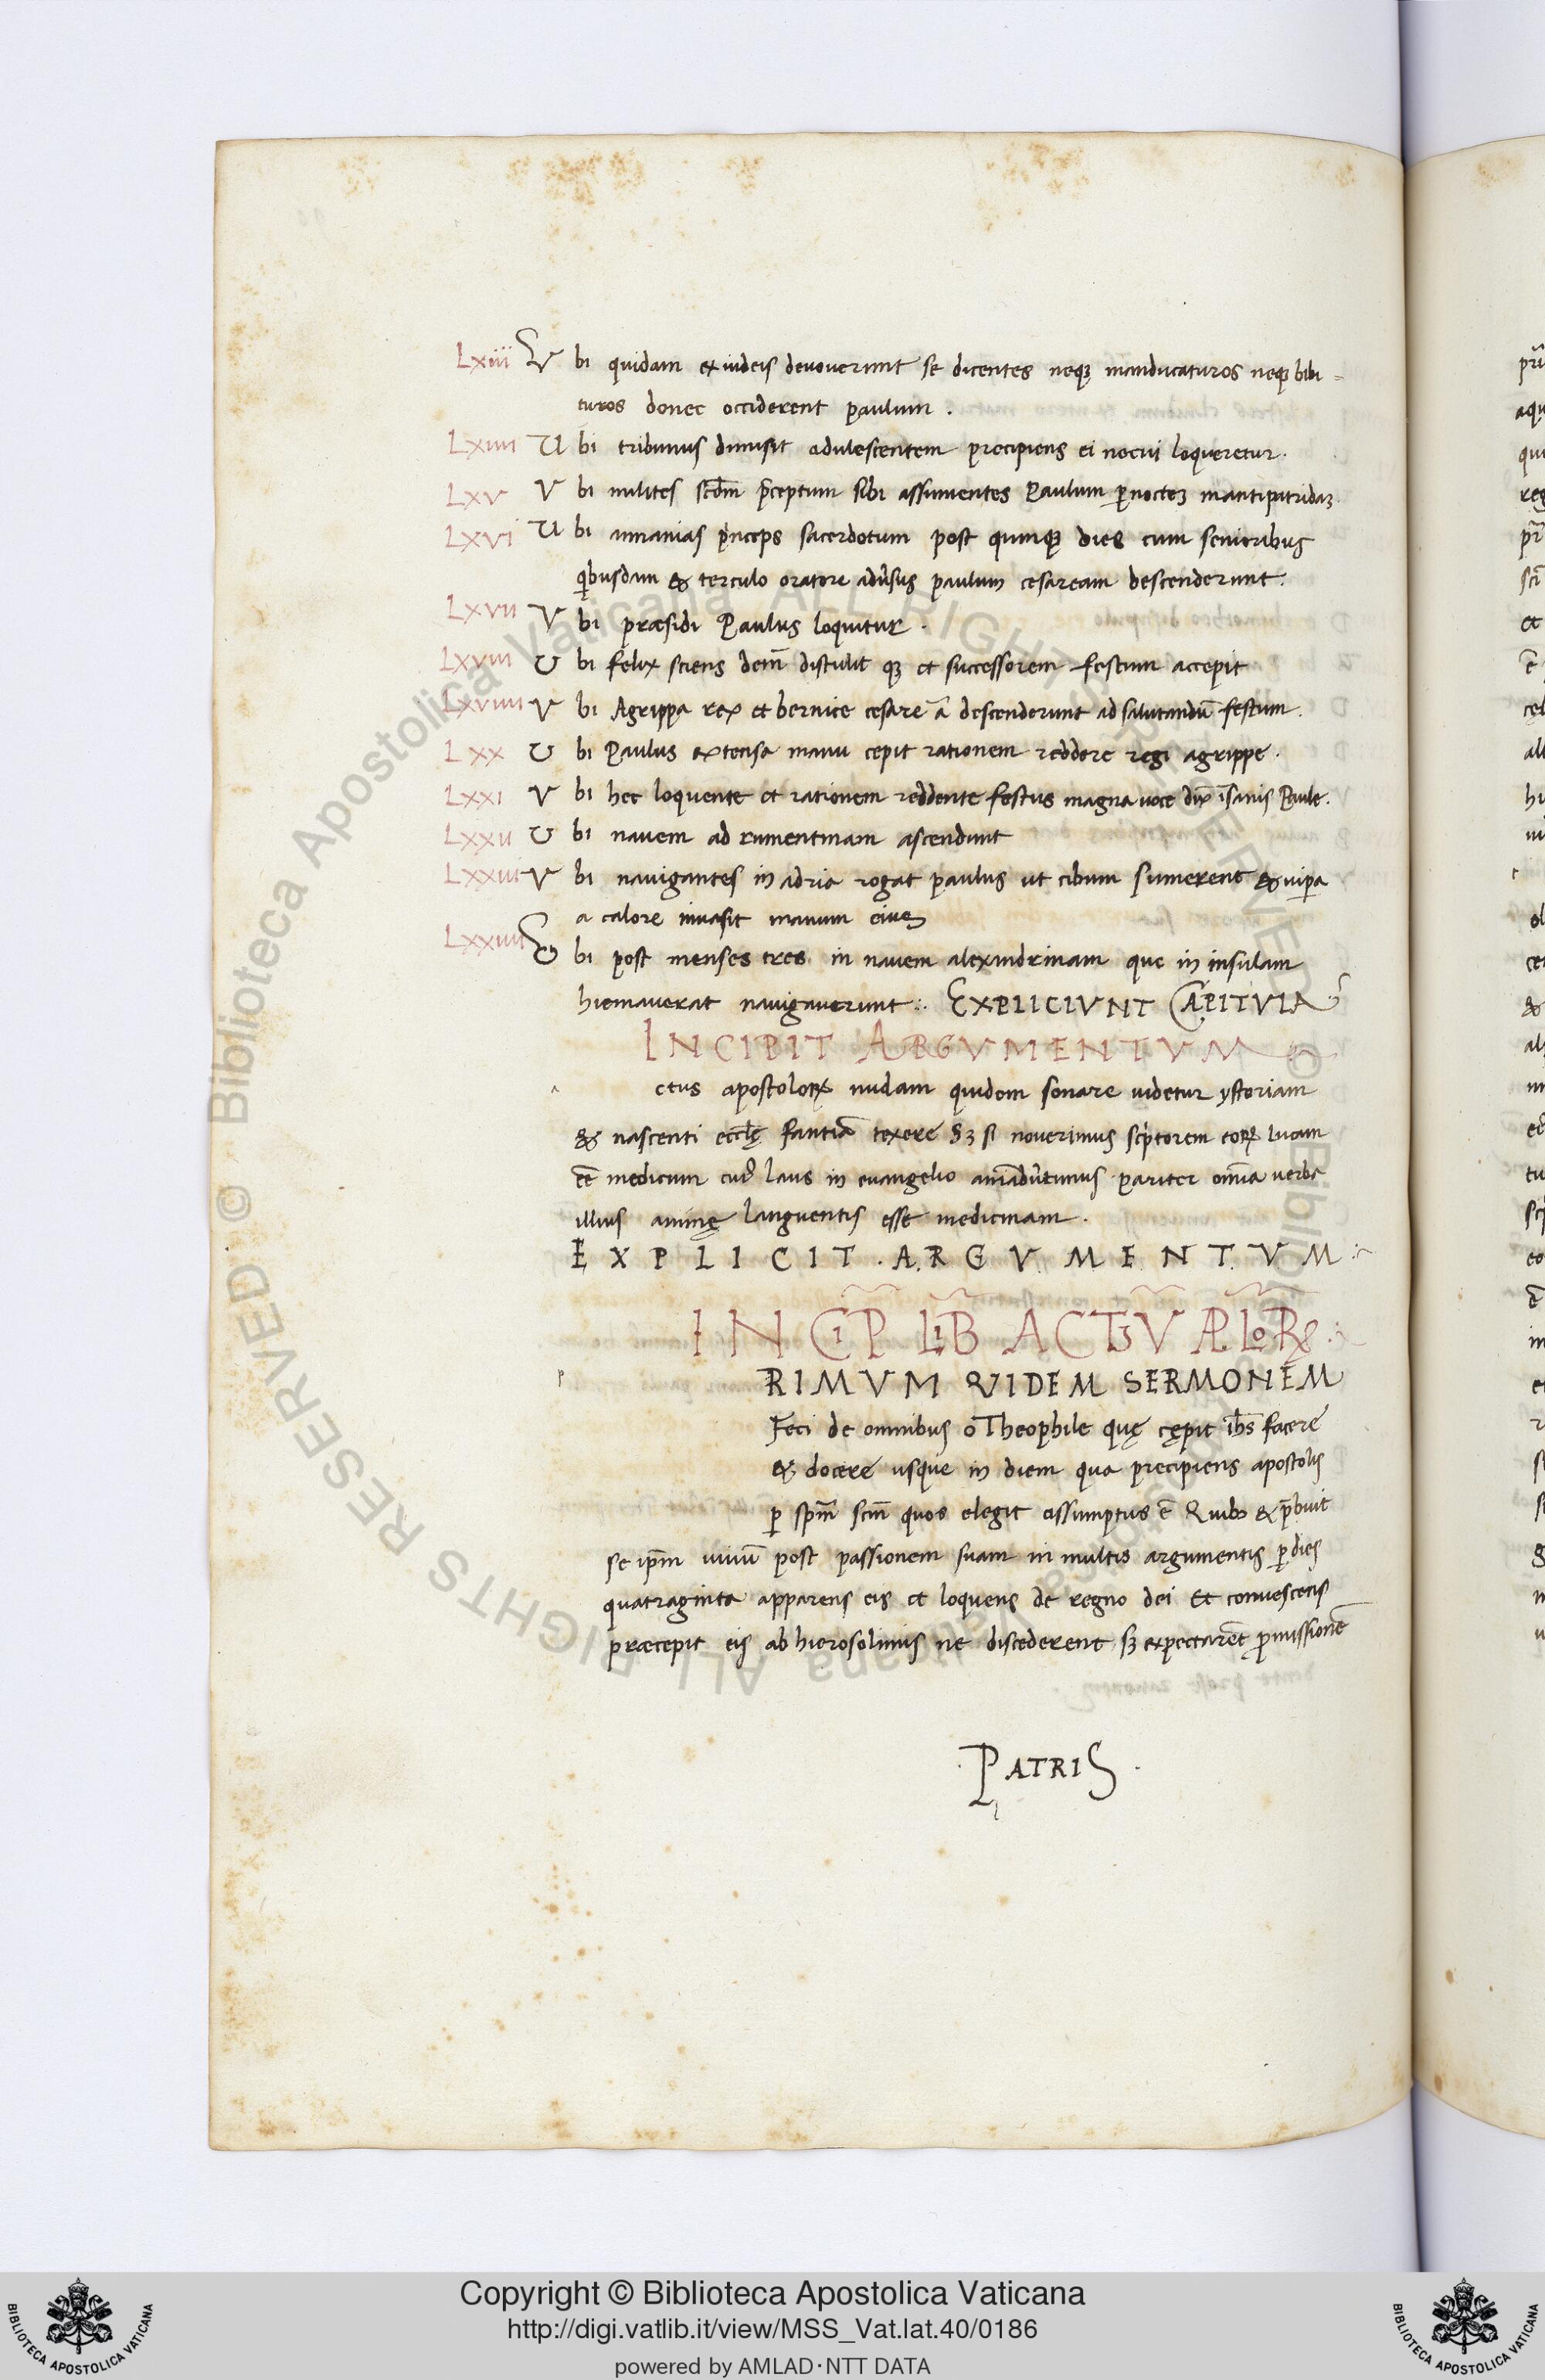 Lxiii V bi quidam ex iudeis devoverunt se dicentes neqꝫ manducaturos neqꝫ bibi=
turos donec occiderent paulum .
Lxiiii U bi tribunus dimisit adulescentem precipiens ei necui loqueretur.
Lxv V bi milites scdm̄ p̄ceptum sibi assumentes Paulum ꝑ nocteꝫ
Lxvi U bi annanias princeps sacerdotum post quinqꝫ dies cum senioribus
quibusdam & terculo oratore adūsus paulum cesaream descenderunt.
Lxvii V bi præsidi Paulus loquitur .
Lxviii U bi felix sciens distulit et successorem festum accepit
Lxviiii V bi Agrippa rex et bernice cesareā descenderunt ad salutandū festum.
Lxx U bi Paulus extensa manu cepit rationem reddere regi agrippe.
Lxxi V bi hec loquente et rationem reddente festus magna uoce dix̄ īsanis Paule.
Lxxii U bi navem ad rumentinam ascendunt
Lxxiii V bi navigantes in adria rogat paulus ut cibum sumerent & uiꝑa
a calore invasit manum eius
Lxxiiii U bi post menses tres in navem alexandrinam que in insulam
hiemaverat navigaverunt :. EXPLICIVNT CAPITVLA
INCIPIT ARGVMENTVM
a ctus apostoloꝝ nudam quidem sonare uidetur ystoriam
& nascenti eccl̄ę fantiā texere Sꝫ si noverimus scriptorem eoꝝ lucam
eē medicum cuiꝰ laus in euangelio pariter omīa verba
illius animę languentis esse medicinam .
EXPLICIT . ARGVMENTVM :~
INCIP̄ LIB̄ ACTꝫV APLOꝜ :
p RIMVM QVIDEM SERMONEM
Feci de omnibus o Theophile quę cępit ih̄s facere
& docere usque in diem qua precipiens apostolis
ꝑ spm̄ scm̄ quos elegit assumptus ē Quibꝫ & p̄buit
se ipm̄ uiuū post passionem suam in multis argumentis ꝑ dies
quatraginta apparens eis et loquens de regno dei Et convescens
præcepit eis ab hierosolimis ne discederent sꝫ expectarēt ꝓmissionē
. PATRIS .
Copyright © Biblioteca Apostolica Vaticana
http://digi.vatlib.it/view/MSS_Vat.lat.40/0186
powered by AMLAD·NTT DATA